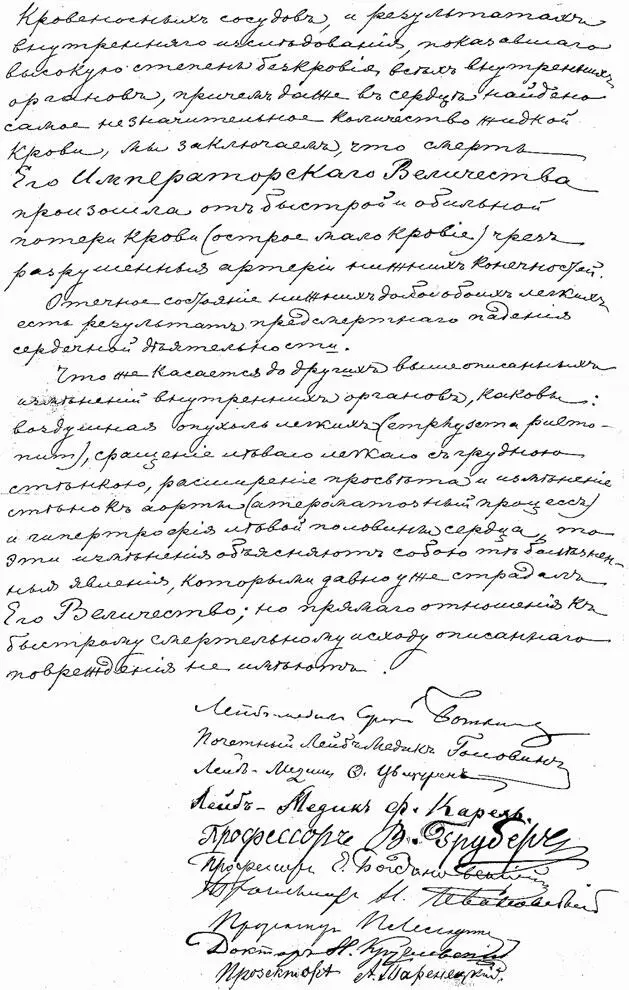 Кровеносныхъ сосудовъ, и результатахъ
внутренняго изслѣдованія, показавшаго
высокую степень безкровія всѣхъ внутреннихъ
органовъ, причемъ даже въ сердцѣ найдено
самое незначительное количество жидкой
крови, мы заключаемъ, что смерть
Его Императорскаго Величества
произошла отъ быстрой и обильной
потери крови (острое малокровіе) чрезъ
разрушенныя артеріи нижнихъ конечностей.
Отечное состояніе нижнихъ долей обоихъ легкихъ
есть результатъ предсмертнаго паденія
сердечной дѣятельности.
Что же касается до другихъ вышеописанныхъ
измѣненій внутреннихъ органовъ, каковы:
воздушная опухоль легкихъ (
), сращеніе лѣваго легкаго съ грудною
стѣнкою, расширеніе просвѣта и измѣненіе
стѣнокъ аорты (атероматозный процессъ)
и гипертрофія лѣвой половины сердца, то
эти измѣненія объясняютъ собою тѣ болѣзнен-
ныя явленія, которыми давно уже страдалъ
Его Величество; но прямаго отношенія къ
быстрому смертельному исходу описаннаго
поврежденія не имѣютъ.
Лейбъ-медикъ Сергѣй Боткинъ
Почетный Лейбъ-Медикъ Головинъ
Лейб-Медикъ
Лейбъ-Медикъ Ф. Карель.
Профессоръ В. Груберъ
Профессоръ Е. Богдановскій
Н. Ивановскій
П. Лесгафтъ
Докторъ Н. Круглевскій
Прозекторъ А. Таренецкій.